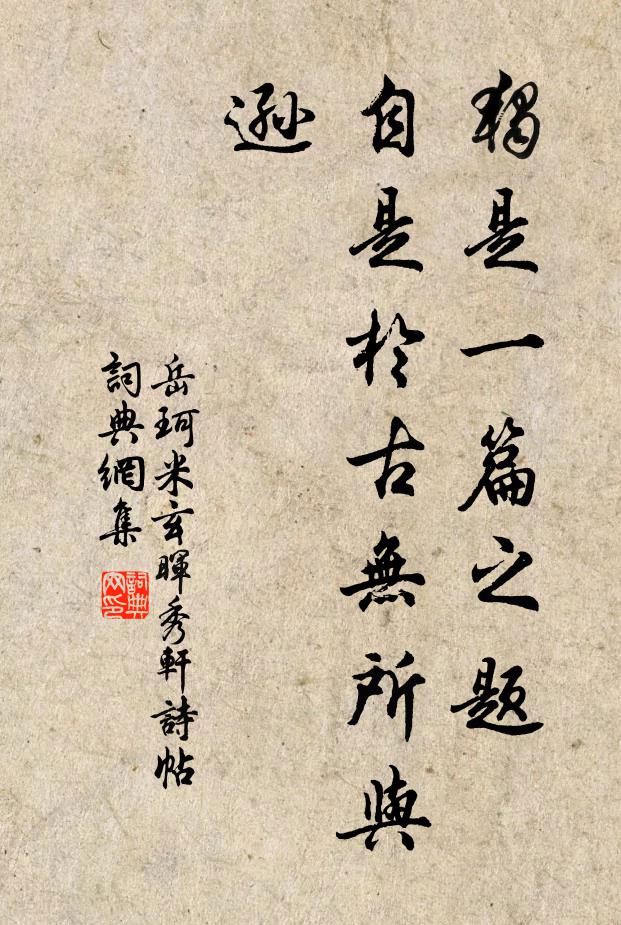 獨是一篇之题
自是於古無所與
遜
岳珂米玄暉秀軒詩帖
詞典網集
詞典网印